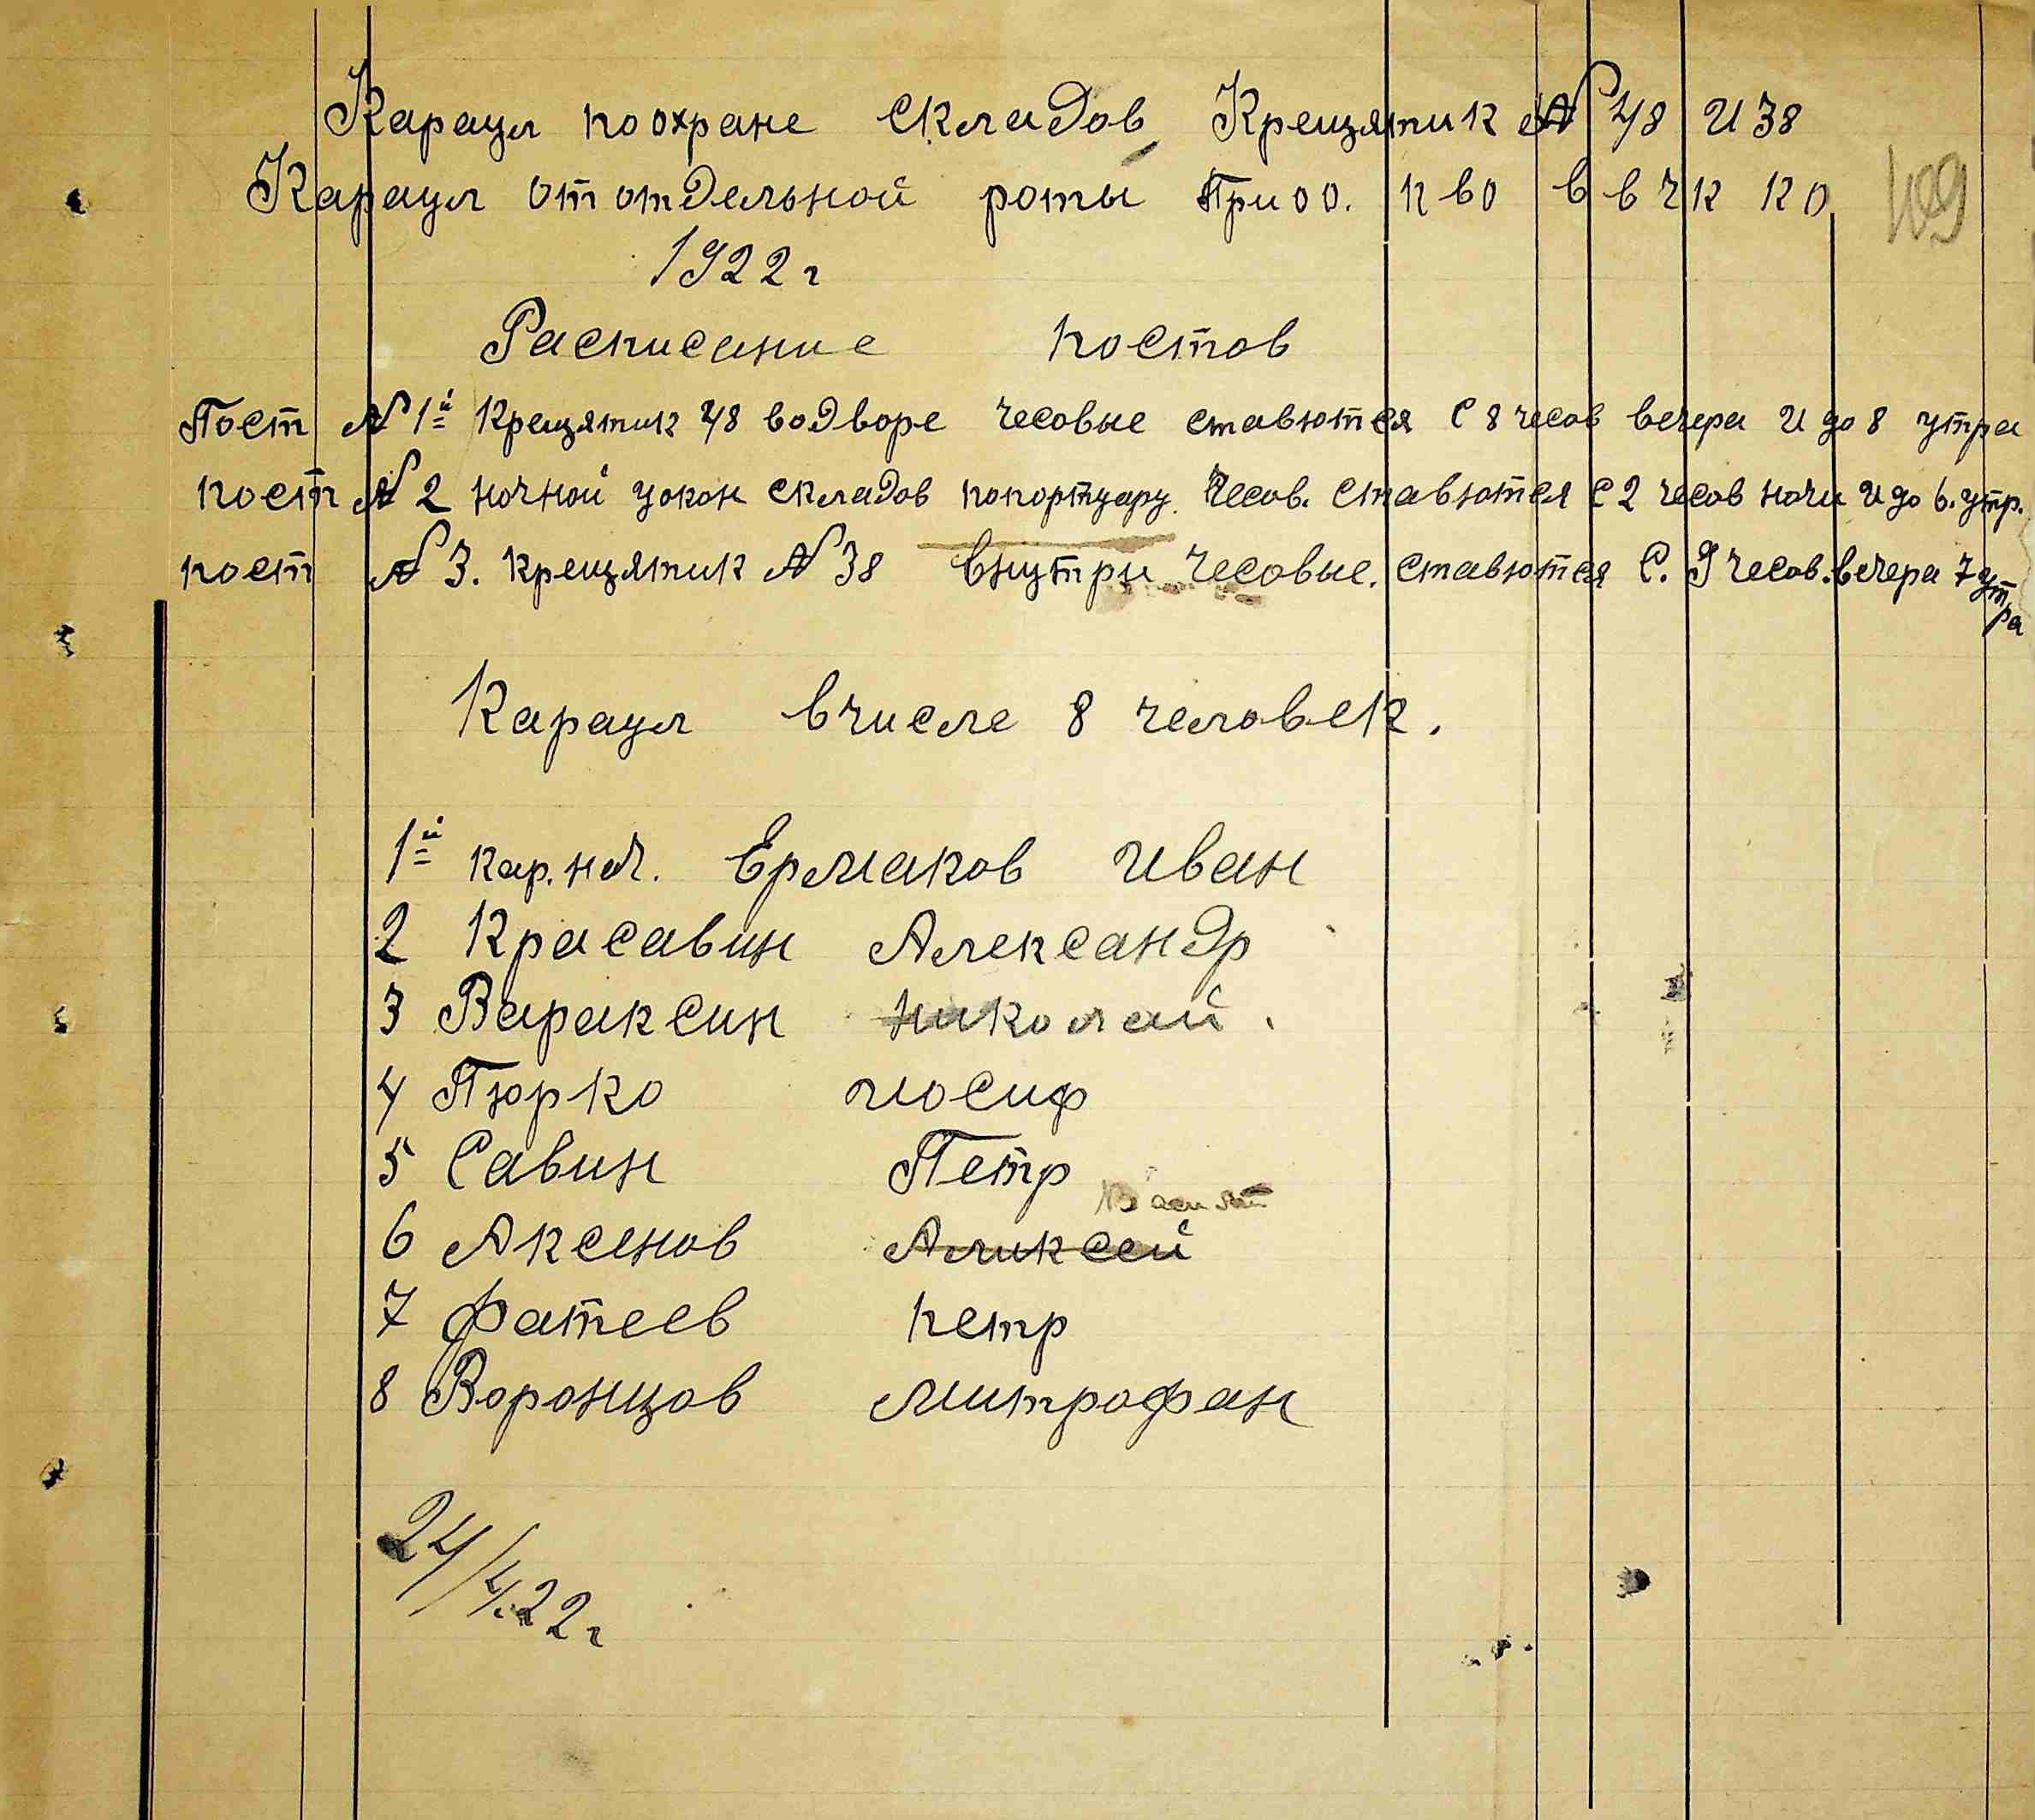 Караул по охране складов Крещятик № 48 и 38
Караул от отдельной роты При оо. К во в в ч к к о 109
1922 г
Расписание постов
Пост № 1й Крещятик 48 во дворе чесовые ставются с 8 чесов вечера и до 8 утра
пост № 2 ночной у окон складов по портуару Чесов. ставются с 2 чесов ночи и до 6. утр.
пост № 3. Крещятик № 38 внутри чесовые. ставются с. 9 чесов. вечера 7 утра
Караул в числе 8 человек.
1й кар. нач. Ермаков Иван
2 Красавин Александр
3 Вараксин Николай.
4 Пюрко иосиф
5 Савин Петр
6 Аксенов Аликсей
7 Фатеев петр
8 Воронцов митрофан
24/4.22 г